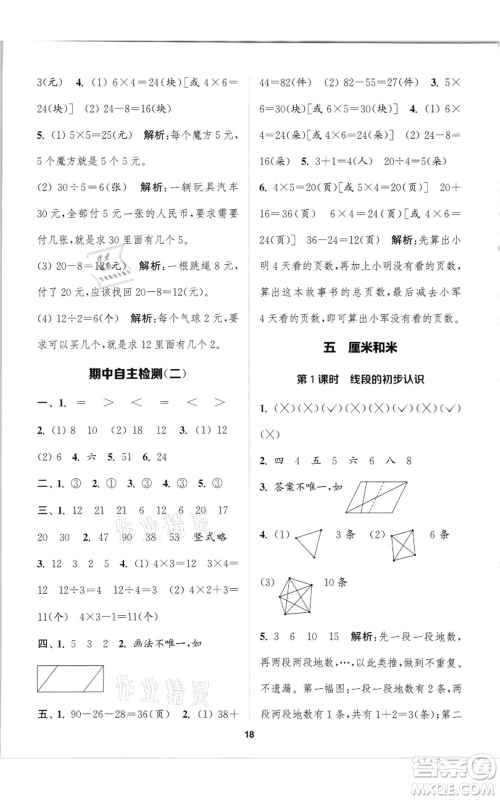 3(元) 4. (1) 6×4=24(块)[或 4×6=
24(块)] (2) 24-8=16(块)
5. (1) 5×5=25(元) 解析:每个魔方5元,
5个魔方就是5个5。
(2) 30÷5=6(张) 解析:一辆玩具汽车
30元,全部付一张5元的人民币,要求要
付几张,就是求30里面有几个5。
(3) 20-8=12(元) 解析:一根跳绳8元,付
20元,应该找回20-8=12(元)。
(4) 12÷2=6(个) 解析:每个气球2元,
12元可以买几个,就是求12里面有几个2。
期中自主检测(二)
一、1. = > < > < =
2. (1) 8 10 (2) 12 16 3. (1)
(2) 6 4. 六 5. 6 6. 24
二、1. ③ 2. ① 3. ② 4. ② 5. ③
三、1. 20 6 6 25 6 15 17
30 4 2. 47 90 38 53 竖式略
3. 16 20 24 4. (1) 4×3=12(个)
(2) 4×2+3=11(个) 或 4×3-1=
11(个)
四、1. 5 3 2 2. 画法不唯一,如
五、1. 90-26-28=36(页) 2. (1) 38+
44=82(件) (2) 82-55=27(件) 3. 5×
6=30(只)[或 6×5=30(只)] 4. (1) 6×
4=24(朵)[或 4×6=24(朵)] (2) 24÷
8=3(朵) 5. 3+1=4(人) 20÷4=5(个)
6. 4×5=20(页)[或 5×4=20(页)] 20+
16=36(页) 36-24=12(页) 解析:先算出小
明4天看的页数,再算出这本故事书的总
页数,最后用这本故事书的总页数减去小军
4天看的页数,求出小军第5天要看的页数。
五 厘米和米
第1课时 线段的初步认识
1. (×)(×)(✓)(×)(×)(✓)(✓)
(×)
2. 四 4 五 5 六 6 八 8
3. 答案不唯一,如
4. (1) 3条 (2) 6条
(3) 10条
5. 3 6 10 15 解析:先一段一段地数,
再两段两段地数,…,以此类推,做到不重复、
不遗漏。第一幅图:一段一段地数有2条,
两段两段地数有1条,共有1+2=3(条);第二
18